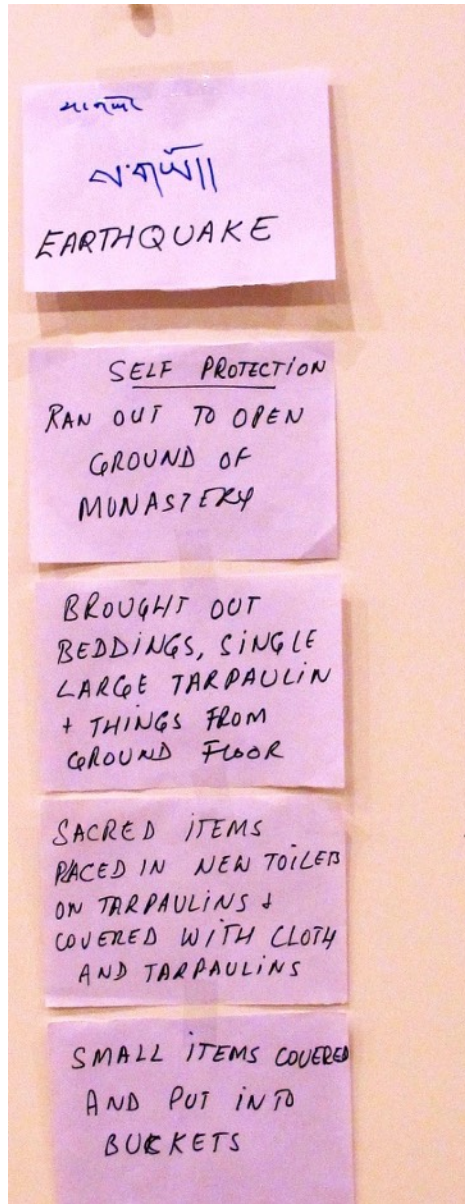 ས་གཡོ།།
EARTHQUAKE
SELF PROTECTION
RAN OUT TO OPEN
GROUND OF
MONASTERY
BROUGHT OUT
BEDDINGS, SINGLE
LARGE TARPAULIN
+ THINGS FROM
GROUND FLOOR
SACRED ITEMS
PLACED IN NEW TOILETS
ON TARPAULINS &
COVERED WITH CLOTH
AND TARPAULINS
SMALL ITEMS COVERED
AND PUT INTO
BUCKETS